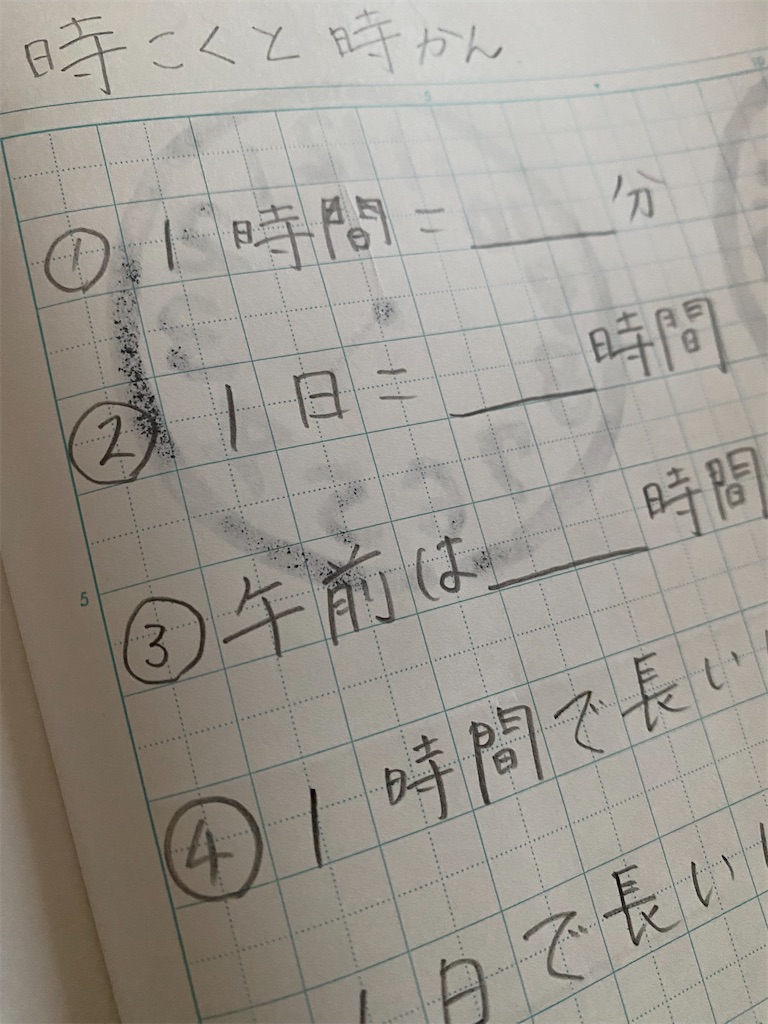 時こくと時かん
① 1時間=____分
② 1日=____時間
③ 午前は____時間
④ 1時間で長い
1日で長い